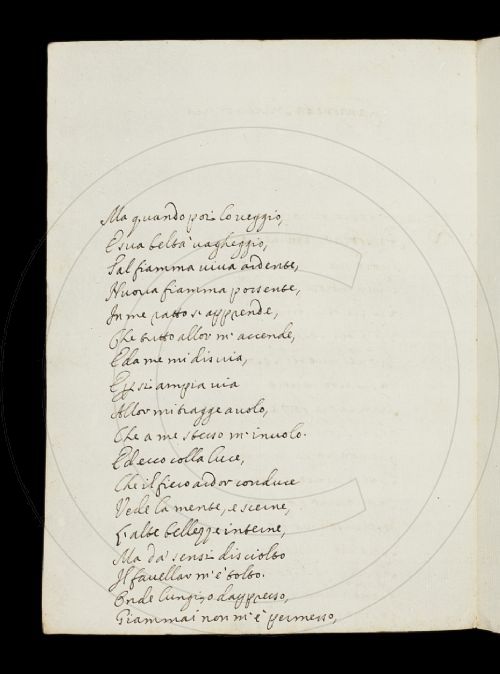 Ma quando poi lo veggio,
E sua beltà vagheggio,
Tal fiamma viva ardente,
Nuova fiamma possente,
In me ratto s'apprende,
Che tutto allor m'accende,
E da me mi disvia,
E per sì ampia via
Allor mi tragge a volo,
Che a me stesso m'involo.
Ed ecco colla luce,
Che il fiero ardor conduce
Vede la mente, e scerne,
L'alte bellezze interne,
Ma da' sensi disciolto
Il favellar m'è tolto.
Onde lungi, o dappresso,
Giammai non m'è permesso,